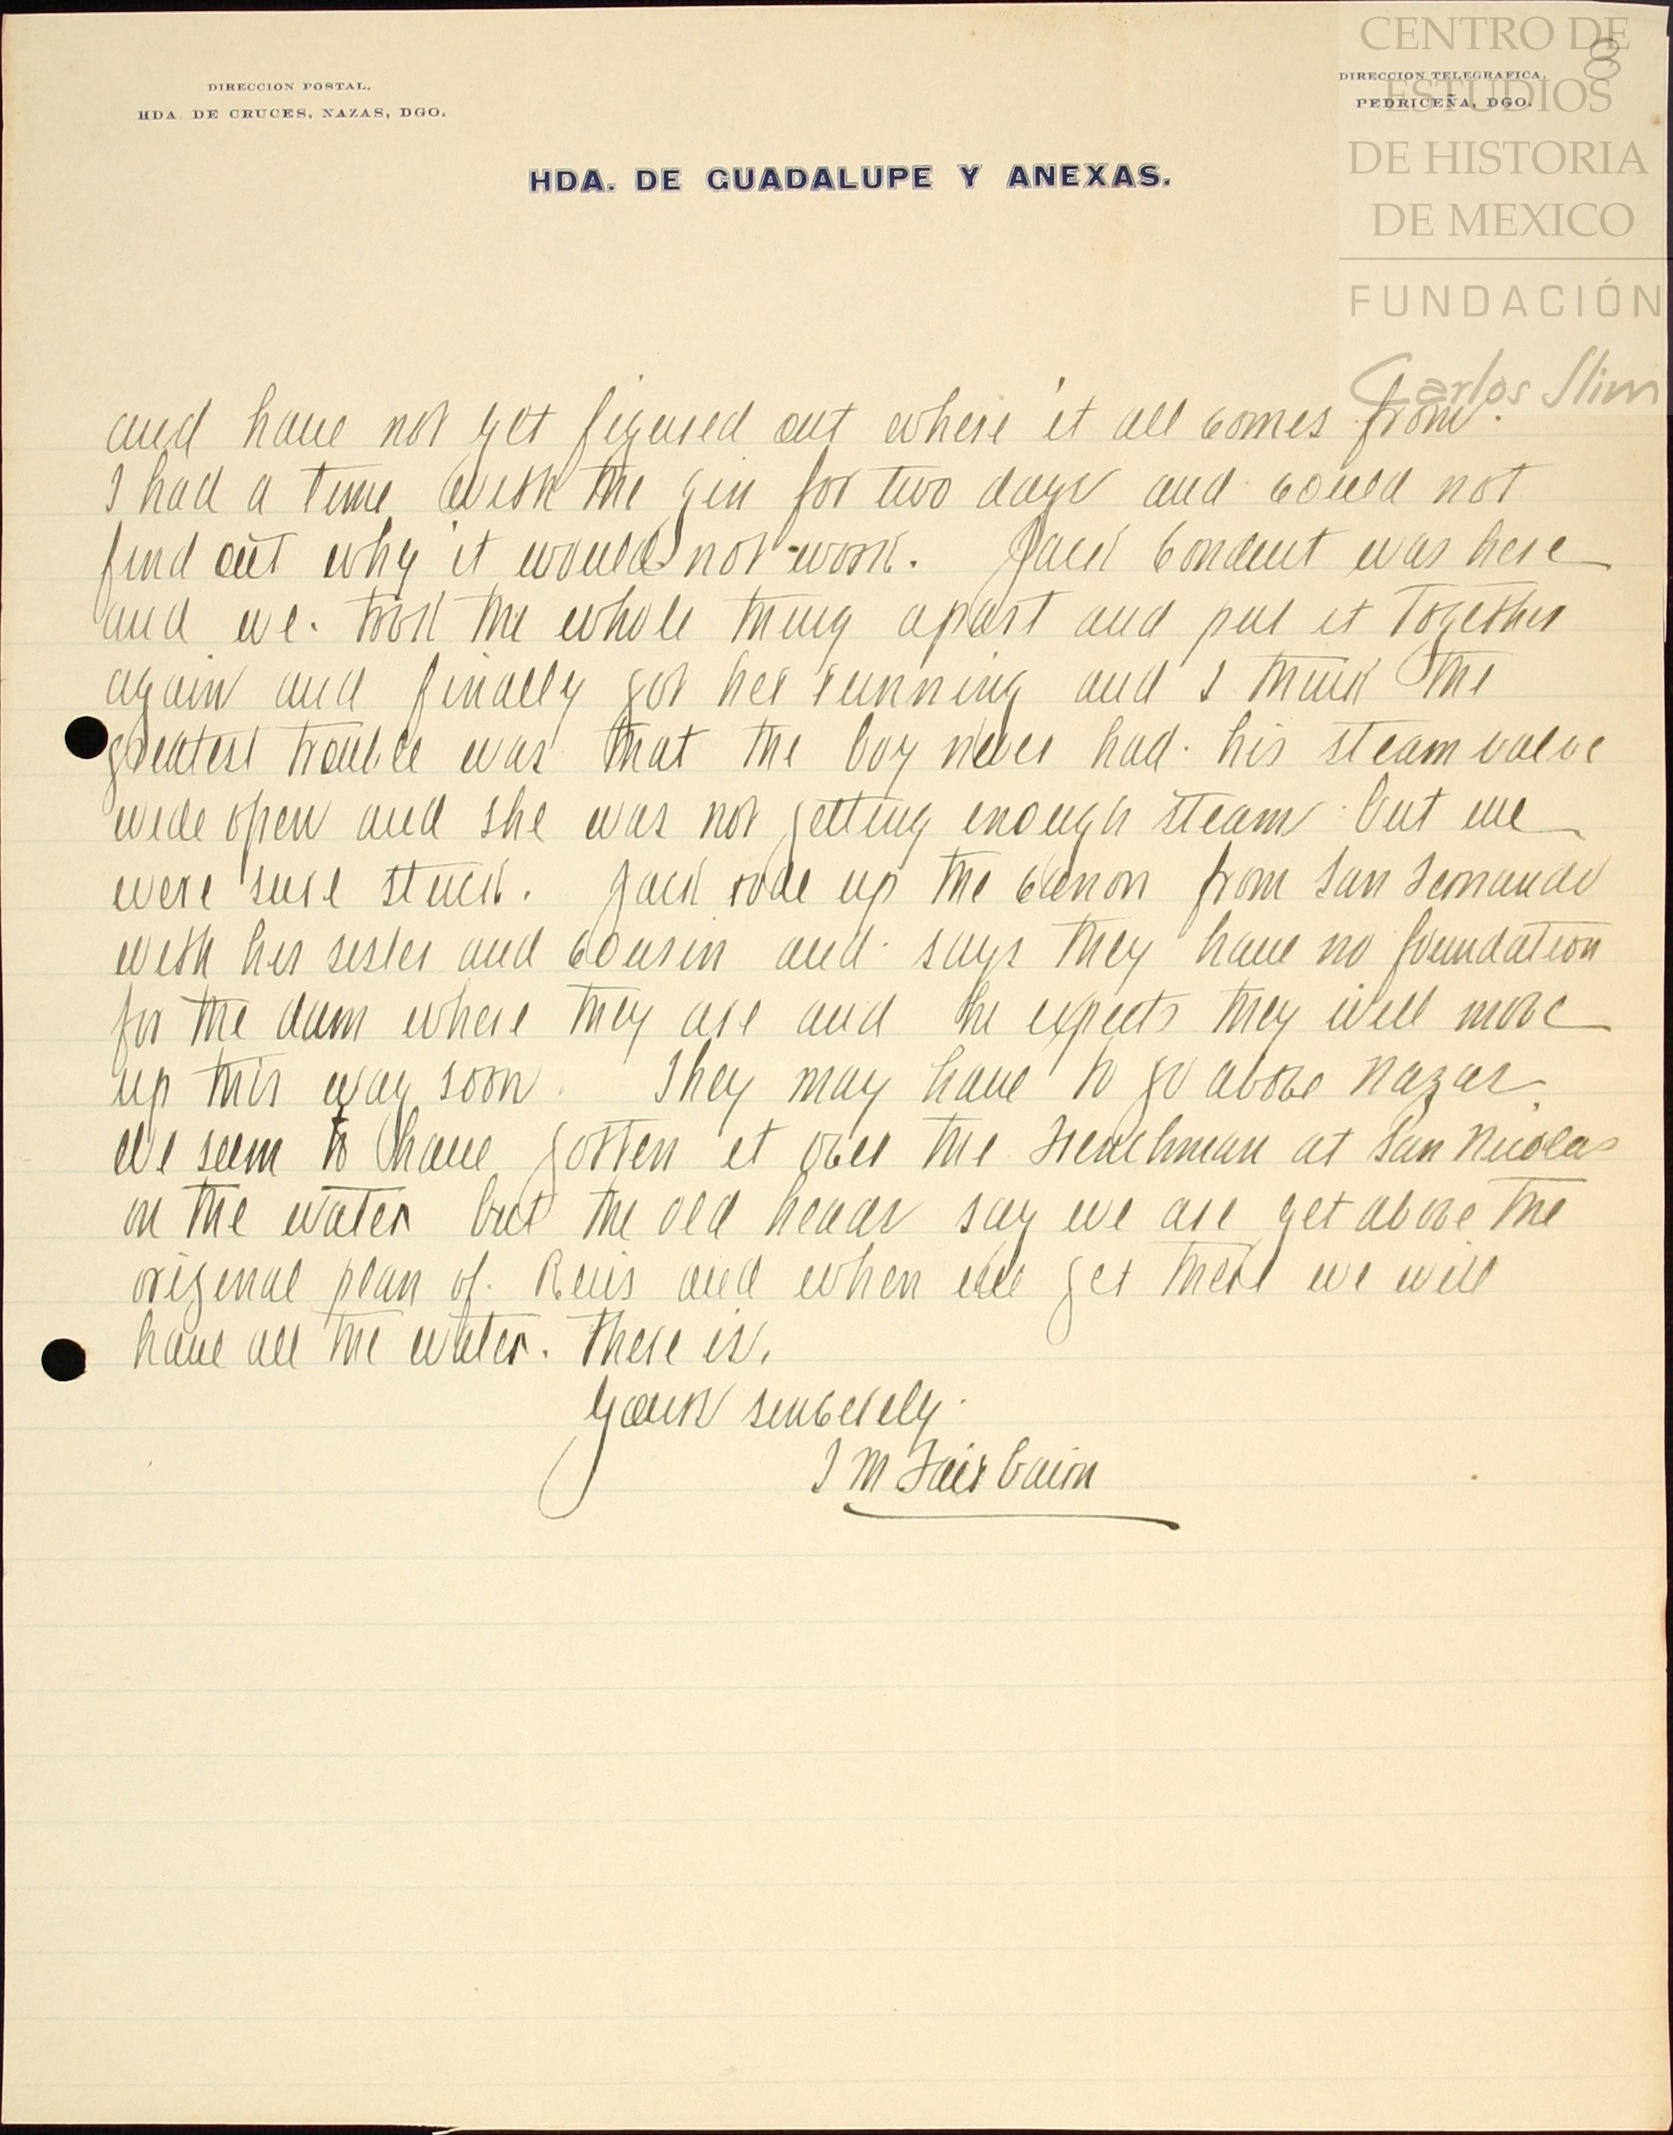 DIRECCION POSTAL.
HDA. DE CRUCES, NAZAS, DGO.
DIRECCION TELEGRAFICA.
PEDRICEÑA, DGO.
CENTRO DE
ESTUDIOS
DE HISTORIA
DE MEXICO
FUNDACIÓN
Carlos Slim
HDA. DE GUADALUPE Y ANEXAS.
and have not yet figured out where it all comes from.
I had a time with the gin for two days and could not
find out why it would not work. Jack was here
and we took the whole thing apart and put it together
again and finally got her running and I think the
greatest trouble was that the boy never had his steam valve
wide open and she was not getting enough steam but we
were sure stuck. Jack rode up the canon from San Fernando
with his sister and cousin and says they have no foundation
for the dam where they are and he expects they will move
up this way soon. They may have to go above Nazas.
We seem to have gotten it over the Frenchman at San Nicolas
on the water but the old heads say we are yet above the
original plan of and when we get there we will
have all the water there is.
Yours sincerely
J M Fairbairn